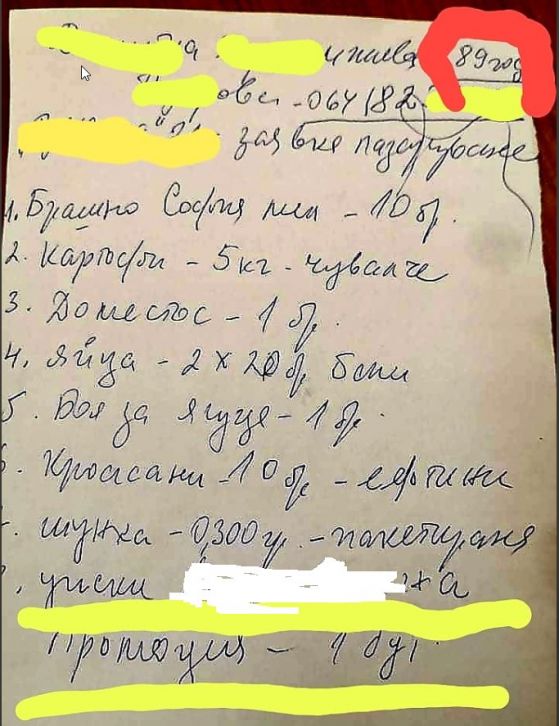 89 год
-064/82
заявка пазаруване
1. Брашно София мел - 10 бр.
2. Картофи - 5 кг - чувалче
3. Доместос - 1 бр.
4. яйца - 2 x 20 бр. бели
5. Боя за яйца - 1 бр.
Кроасани - 10 бр. - евтини
шунка - 0,300 гр. - пакетирана
уиски
Промоция - 1 бут.